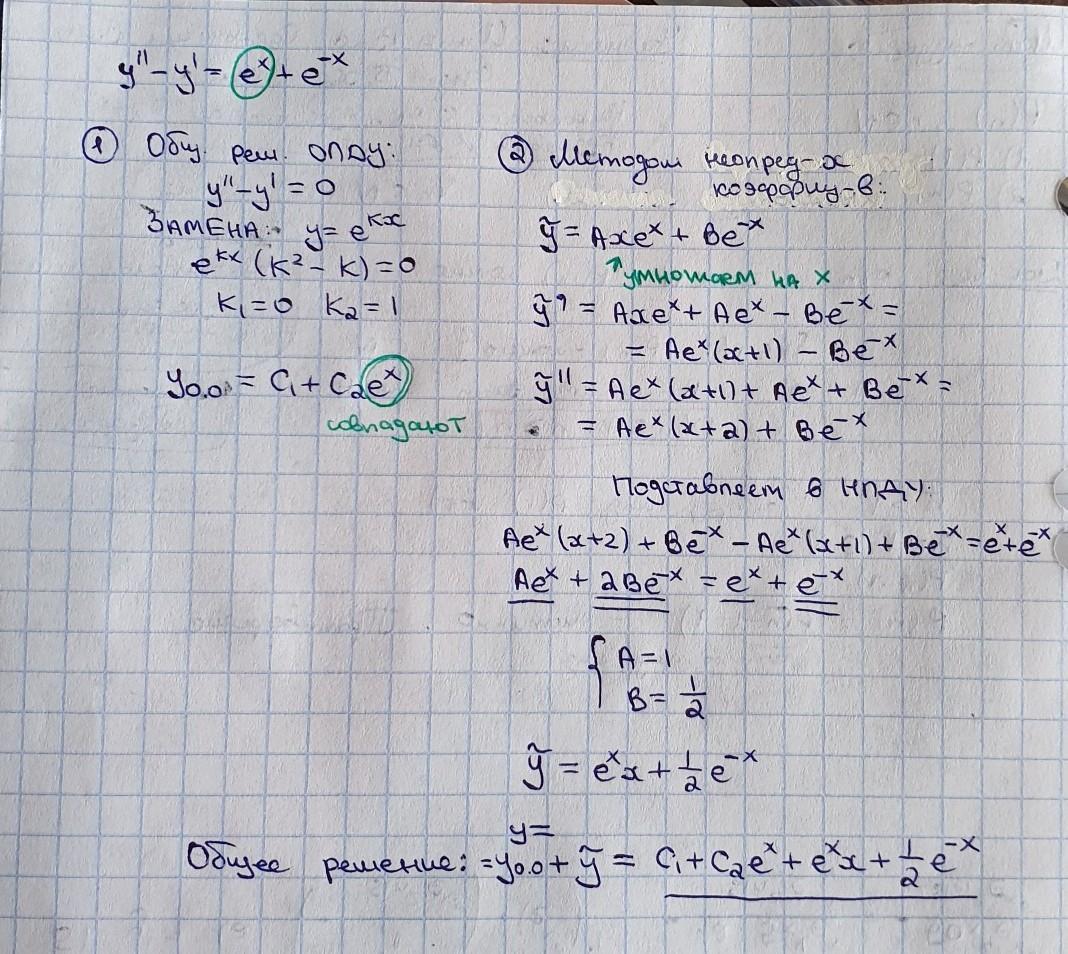 y'' - y' = e^x + e^-x
① Общ. реш. ОЛДУ:
y'' - y' = 0
ЗАМЕНА: y = e^kx
e^kx (k² - k) = 0
k₁ = 0 k₂ = 1
y₀.₀ = C₁ + C₂e^x
совпадают
② Методом неопред-х
коэффиц-в:
ỹ = Axe^x + Be^-x
↗умножаем на x
ỹ' = Axe^x + Ae^x - Be^-x =
= Ae^x(x+1) - Be^-x
ỹ'' = Ae^x(x+1) + Ae^x + Be^-x =
= Ae^x(x+2) + Be^-x
Подставляем в НЛДУ:
Ae^x(x+2) + Be^-x - Ae^x(x+1) + Be^-x = e^x + e^-x
Ae^x + 2Be^-x = e^x + e^-x
{ A = 1
B = 1/2
ỹ = e^x x + 1/2 e^-x
y =
Общее решение: = y₀.₀ + ỹ = C₁ + C₂e^x + e^x x + 1/2 e^-x